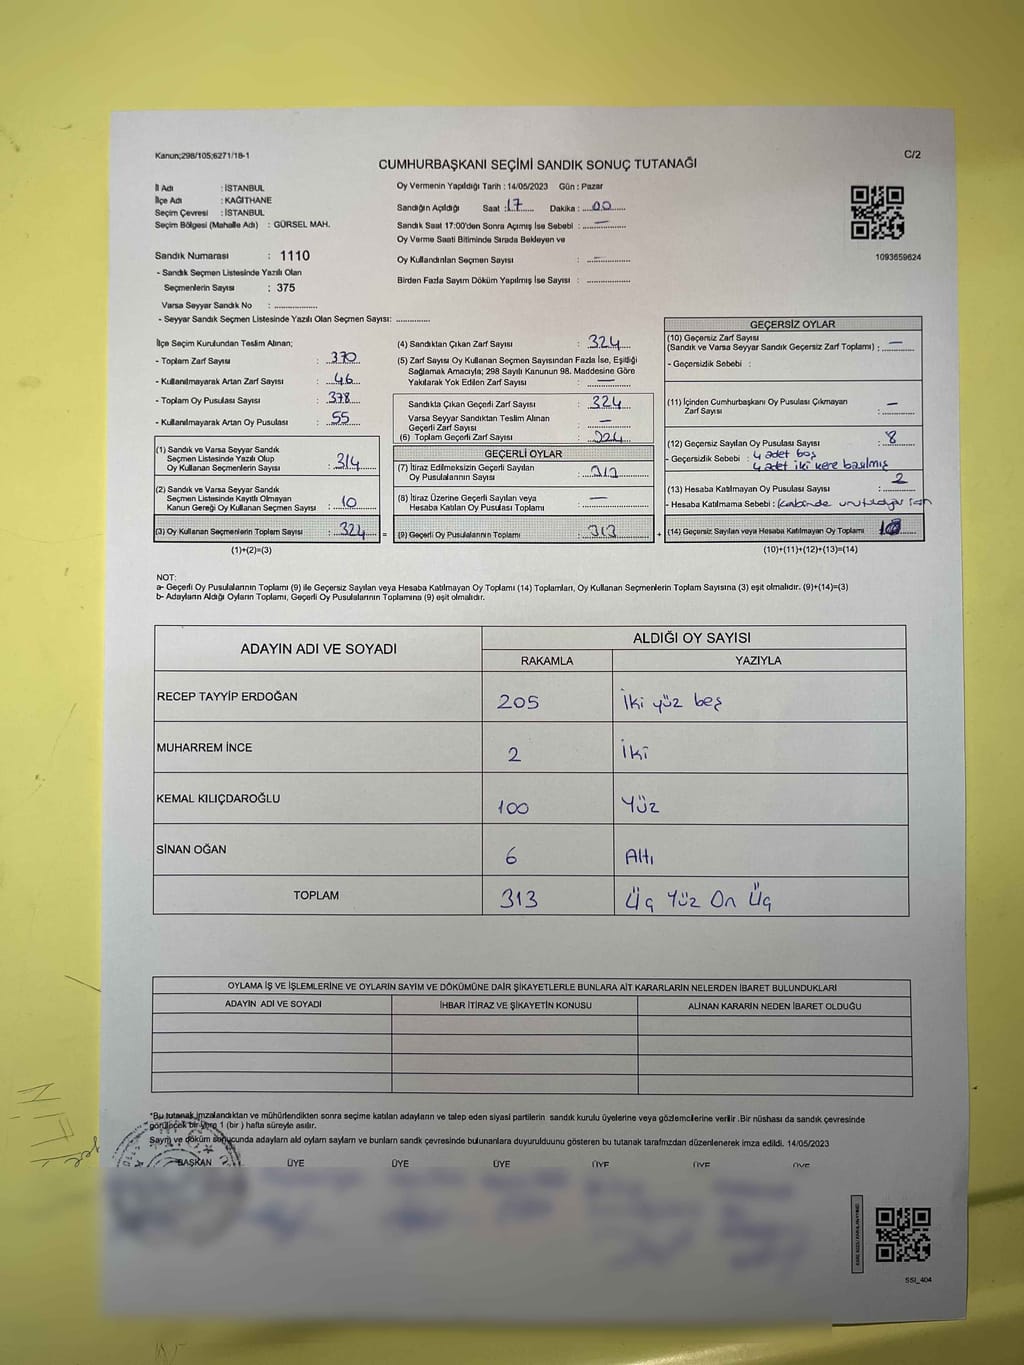 Kanun;298/105;6271/18-1
CUMHURBAŞKANI SEÇİMİ SANDIK SONUÇ TUTANAĞI
C/2
İl Adı : İSTANBUL
İlçe Adı : KAĞITHANE
Seçim Çevresi : İSTANBUL
Seçim Bölgesi (Mahalle Adı) : GÜRSEL MAH.
Sandık Numarası : 1110
- Sandık Seçmen Listesinde Yazılı Olan
Seçmenlerin Sayısı : 375
Varsa Seyyar Sandık No : ................
- Seyyar Sandık Seçmen Listesinde Yazılı Olan Seçmen Sayısı: .............
Oy Vermenin Yapıldığı Tarih : 14/05/2023 Gün : Pazar
Sandığın Açıldığı Saat : 17 Dakika : 00
Sandık Saat 17:00'den Sonra Açımış İse Sebebi : —
Oy Verme Saati Bitiminde Sırada Bekleyen ve
Oy Kullandırılan Seçmen Sayısı : —
Birden Fazla Sayım Döküm Yapılmış İse Sayısı : ................
1093659624
İlçe Seçim Kurulundan Teslim Alınan;
- Toplam Zarf Sayısı : 370
- Kullanılmayarak Artan Zarf Sayısı : 46
- Toplam Oy Pusulası Sayısı : 378
- Kullanılmayarak Artan Oy Pusulası : 55
(1) Sandık ve Varsa Seyyar Sandık
Seçmen Listesinde Yazılı Olup
Oy Kullanan Seçmenlerin Sayısı : 314
(2) Sandık ve Varsa Seyyar Sandık
Seçmen Listesinde Kayıtlı Olmayan
Kanun Gereği Oy Kullanan Seçmen Sayısı : 10
(3) Oy Kullanan Seçmenlerin Toplam Sayısı : 324 =
(1)+(2)=(3)
(4) Sandıktan Çıkan Zarf Sayısı : 324
(5) Zarf Sayısı Oy Kullanan Seçmen Sayısından Fazla İse, Eşitliği
Sağlamak Amacıyla; 298 Sayılı Kanunun 98. Maddesine Göre
Yakılarak Yok Edilen Zarf Sayısı : —
Sandıkta Çıkan Geçerli Zarf Sayısı : 324
Varsa Seyyar Sandıktan Teslim Alınan
Geçerli Zarf Sayısı : —
(6) Toplam Geçerli Zarf Sayısı : 324
GEÇERLİ OYLAR
(7) İtiraz Edilmeksizin Geçerli Sayılan
Oy Pusulalarının Sayısı : 313
(8) İtiraz Üzerine Geçerli Sayılan veya
Hesaba Katılan Oy Pusulası Toplamı : —
(9) Geçerli Oy Pusulalarının Toplamı : 313 +
GEÇERSİZ OYLAR
(10) Geçersiz Zarf Sayısı
(Sandık ve Varsa Seyyar Sandık Geçersiz Zarf Toplamı) : —
- Geçersizlik Sebebi :
(11) İçinden Cumhurbaşkanı Oy Pusulası Çıkmayan
Zarf Sayısı : —
(12) Geçersiz Sayılan Oy Pusulası Sayısı : 8
- Geçersizlik Sebebi : 4 adet boş
4 adet iki kere basılmış
(13) Hesaba Katılmayan Oy Pusulası Sayısı : 2
- Hesaba Katılmama Sebebi : Kabinde unutulduğu
(14) Geçersiz Sayılan veya Hesaba Katılmayan Oy Toplamı
(10)+(11)+(12)+(13)=(14)
NOT:
a- Geçerli Oy Pusulalarının Toplamı (9) ile Geçersiz Sayılan veya Hesaba Katılmayan Oy Toplamı (14) Toplamları, Oy Kullanan Seçmenlerin Toplam Sayısına (3) eşit olmalıdır. (9)+(14)=(3)
b- Adayların Aldığı Oyların Toplamı, Geçerli Oy Pusulalarının Toplamına (9) eşit olmalıdır.
ADAYIN ADI VE SOYADI
ALDIĞI OY SAYISI
RAKAMLA YAZIYLA
RECEP TAYYİP ERDOĞAN 205 İki yüz beş
MUHARREM İNCE 2 İki
KEMAL KILIÇDAROĞLU 100 Yüz
SİNAN OĞAN 6 Altı
TOPLAM 313 Üç Yüz On Üç
OYLAMA İŞ VE İŞLEMLERİNE VE OYLARIN SAYIM VE DÖKÜMÜNE DAİR ŞİKAYETLERLE BUNLARA AİT KARARLARIN NELERDEN İBARET BULUNDUKLARI
ADAYIN ADI VE SOYADI İHBAR İTİRAZ VE ŞİKAYETİN KONUSU ALINAN KARARIN NEDEN İBARET OLDUĞU
*Bu tutanak imzalandıktan ve mühürlendikten sonra seçime katılan adayların ve talep eden siyasi partilerin sandık kurulu üyelerine veya gözlemcilerine verilir .Bir nüshası da sandık çevresinde
görülecek bir yere 1 (bir ) hafta süreyle asılır.
Sayım ve döküm sonucunda adayların aldı oyların sayların ve bunların sandık çevresinde bulunanlara duyurulduunu gösteren bu tutanak tarafımzdan düzenlenerek imza edildi. 14/05/2023
BAŞKAN ÜYE ÜYE ÜYE ÜYE ÜYE ÜYE
SSI_404